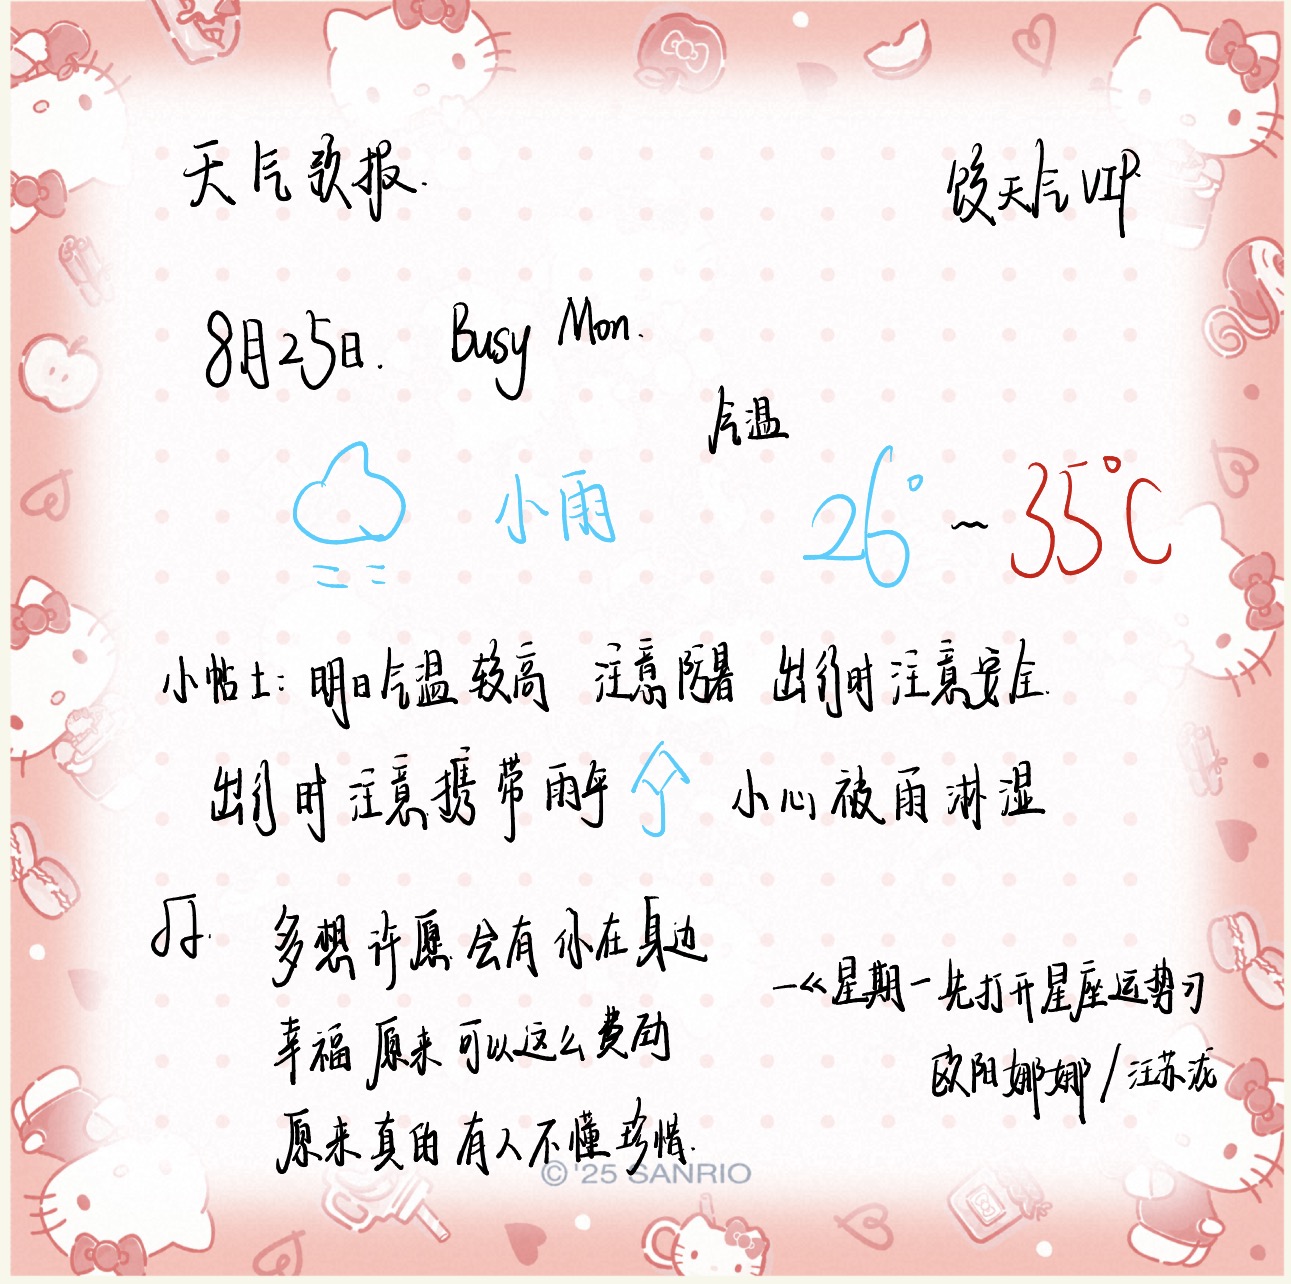 天气歌报.
饺天气VIP
8月25日. Busy Mon.
气温
小雨 26°~35℃
小帖士: 明日气温较高 注意防暑 出行时注意安全.
出行时注意携带雨伞 小心被雨淋湿
多想许愿会有你在身边
幸福原来可以这么费劲
原来真的有人不懂珍惜.
—《星期一先打开星座运势》
欧阳娜娜/汪苏泷
©'25 SANRIO